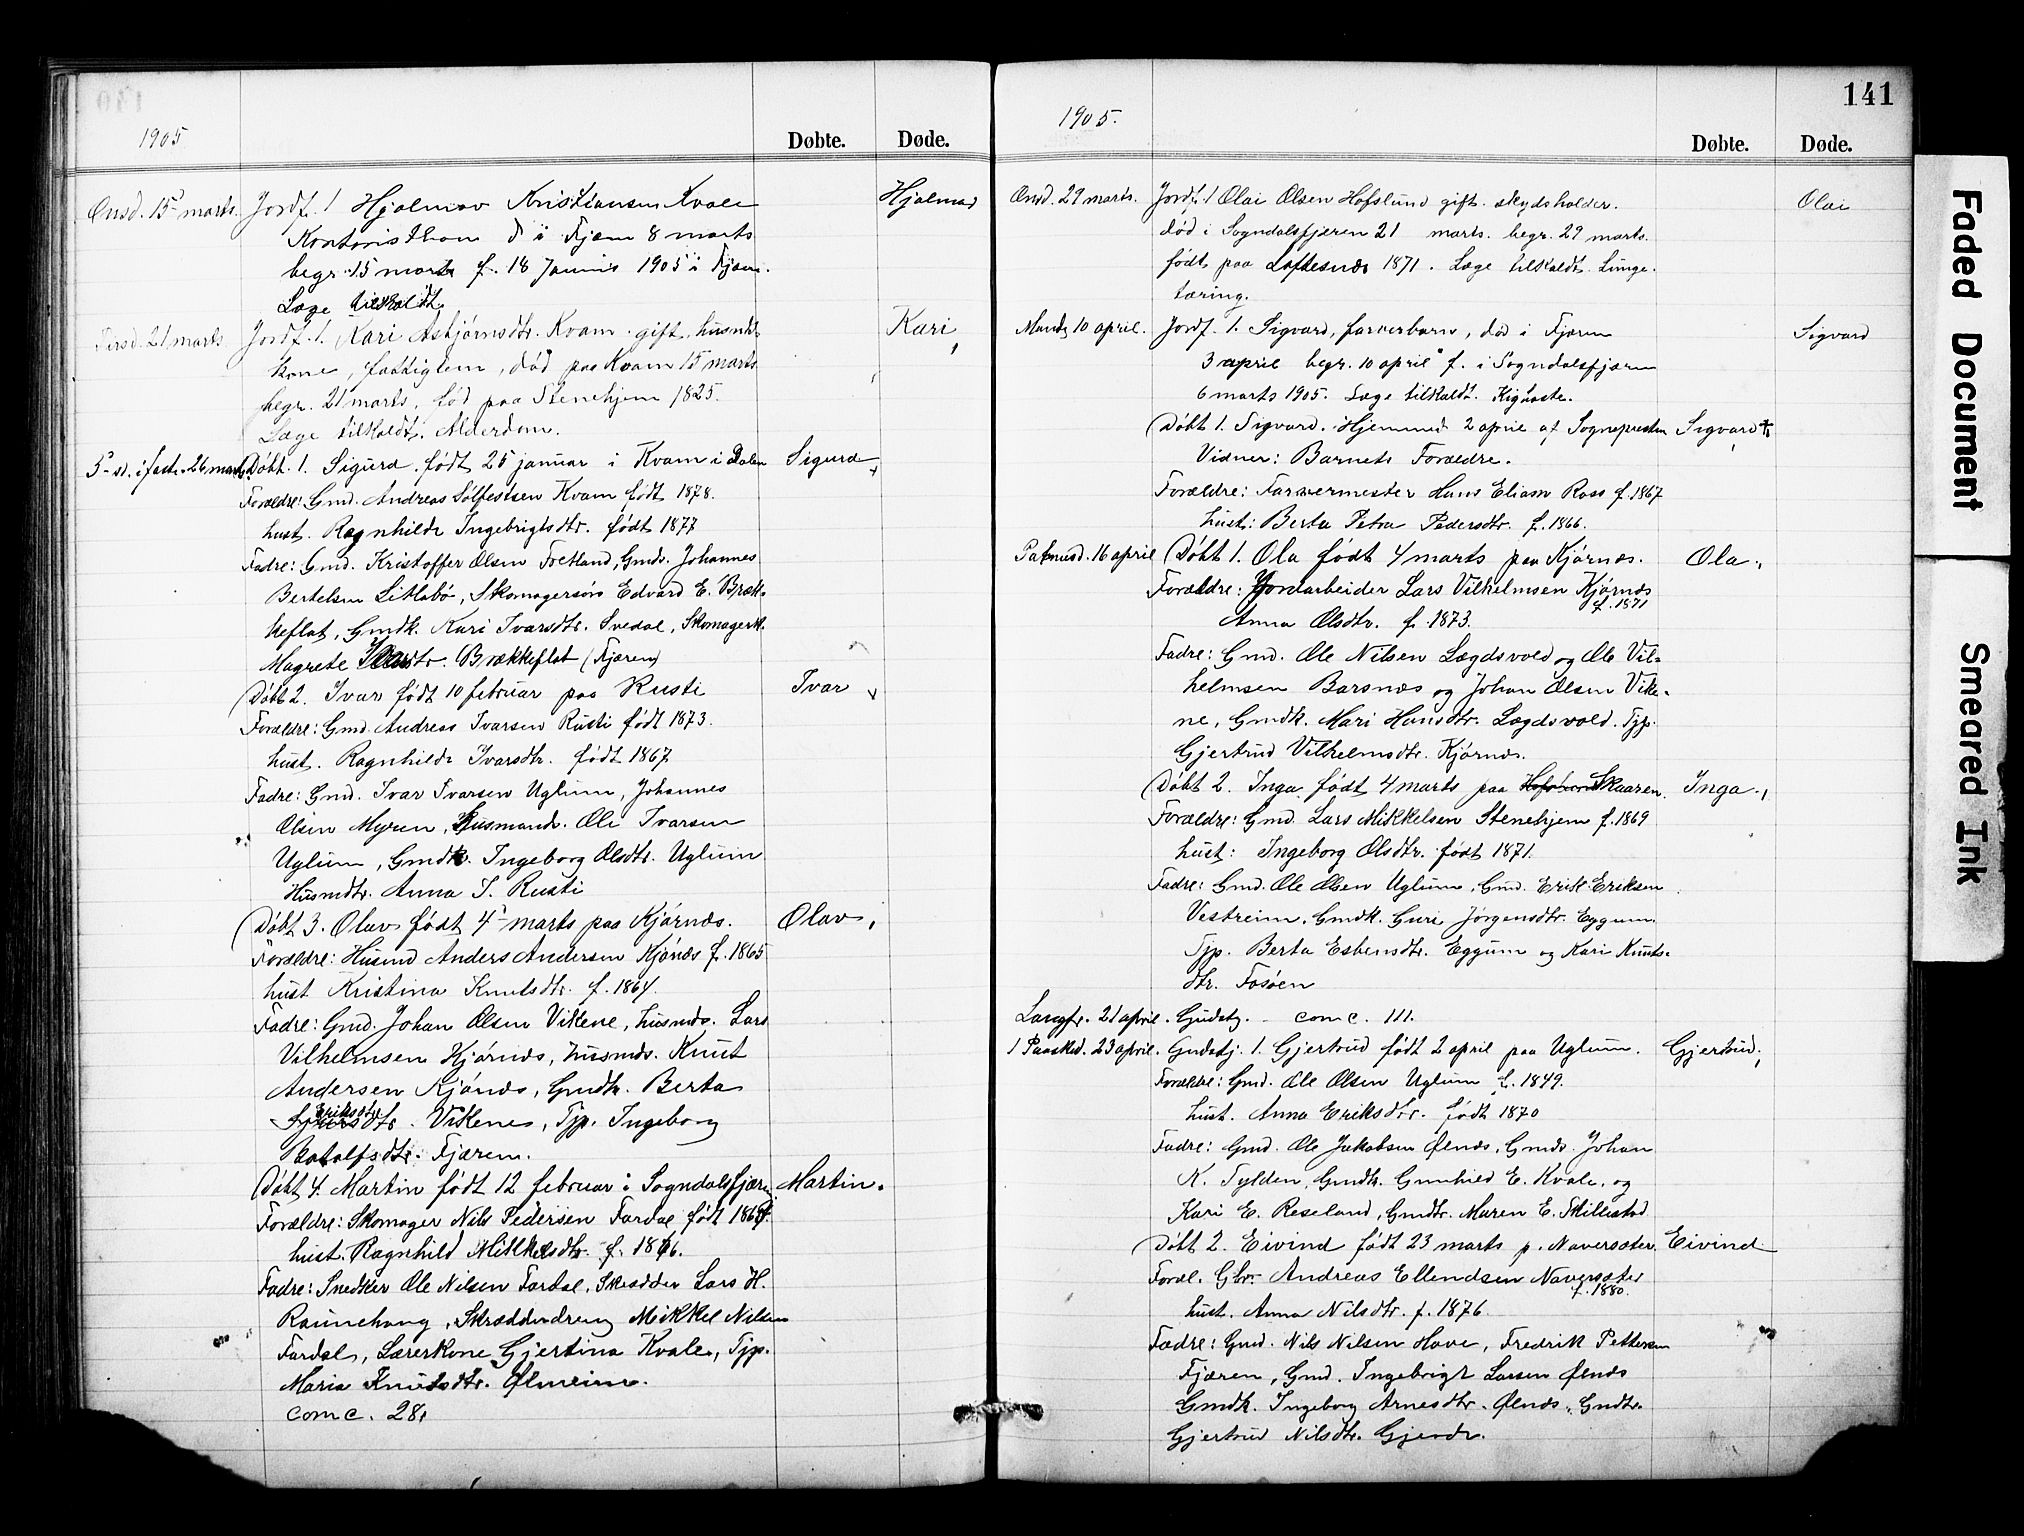 1905
Døbte. Døde.
Onsd. 15 marts. Jordf. 1 Hjalmar Kristiansen Kvale Hjalmar
d i Fjæren 8 marts
begr. 15 marts f. 18 1905 i Fjæren.
Læge tilskaldt.
Tirsd. 21 marts. Jordf. 1. Kari Asbjørnsdtr. Kvam gift, husmds Kari
kone, fattiglem, død paa Kvam 15 marts
begr. 21 marts, fød paa Stenehjem 1825.
Læge tilkaldt. Alderdom.
5 sd. i fast. 26 marts. Døbt. 1. Sigurd født 25 januar i Kvam i Dalen Sigurd
Forældre: Gmd. Andreas Sølfestsen Kvam født 1878.
hust. Ragnhilde Ingebrigtsdtr. født 1877
Fadre: Gmd. Kristoffer Olsen Foetland, Gmds. Johannes
Bertelsen Litlabø, Skomagersøn Edvard E. Bræk-
keflat, Gmdk. Kari Ivarsdtr. Svedal, Skomagerk.
Magrete Brækkeflat (Fjæren)
Døbt 2. Ivar født 10 februar paa Rusti Ivar
Forældre: Gmd. Andreas Ivarsen Rusti født 1873.
hust. Ragnhilde Ivarsdtr. født 1867
Fadre: Gmd. Ivar Ivarsen Uglum, Johannes
Olsen Myren, Husmands. Ole Ivarsen
Uglum, Gmdk. Ingeborg Olsdtr. Uglum
Husmdtr. Anna I. Rusti
Døbt 3. Olav født 4 marts paa Kjørnæs. Olav
Forældre: Husmd Anders Andersen Kjønæs f. 1865
hust Kristina Knutsdtr. f. 1864.
Fadre: Gmd. Johan Olsen Vikene, husmds. Lars
Vilhelmsen Kjørnæs, husmds. Knut
Andersen Kjønæs, Gmdk. Berta
Eriksdtr. Vikenes, Tjp. Ingeborg
Botolfsdtr. Fjæren.
Døbt 4. Martin født 12 februar i Sogndalsfjæren Martin.
Forældre: Skomager Nils Pedersen Fardal født 1864.
hust. Ragnhild Mikkelsdtr. f. 1866.
Fadre: Snedker Ole Nilsen Fardal, Skrædder Lars H.
Raunehaug, Skrædderdreng Mikkel Nilsen
Fardal, Lærerkone Gjertina Kvale, Tjp.
Maria Knutsdtr. Ølmeim.
comc. 28,
141
1905.
Døbte. Døde.
Onsd. 29 marts. Jordf. 1 Olai Olsen Hofslund gift. skydsholder. Olai
død i Sogndalsfjæren 21 marts. begr. 29 marts.
født paa Loftesnæs 1871. Læge tilskaldt. Lunge-
tæring.
Mandg 10 april. Jordf. 1. Sigvard, farverbarn, død i Fjæren Sigvard
3 april begr. 10 april f. i Sogndalsfjæren
6 marts 1905. Læge tilskaldt. Kighoste.
Døbt 1. Sigvard. Hjemmed. 2 april af Sognepresten Sigvard
Vidner: Barnets Forældre.
Forældre: Farvermester Hans Eliasen Ross f. 1867
hust: Berta Petra Pedersdtr. f. 1866.
Palmesd. 16 april Døbt 1. Ola født 4 marts paa Kjørnæs. Ola
Forældre: Jordarbeider Lars Vilhelmsen Kjørnæs
f. 1871
Anna Olsdtr. f. 1873.
Fadre: Gmd. Ole Nilsen Lægdsvold og Ole Vil-
helmsen Barsnæs og Johan Olsen Vike-
ne, Gmdk. Mari Hansdtr. Lægdsvold. Tjp.
Gjertrud Vilhelmsdtr. Kjørnæs.
Døbt 2. Inga født 4 marts paa Skaaren. Inga
Forældre: Gmd. Lars Mikkelsen Stenehjem f. 1869
hust: Ingeborg Olsdtr. født 1871.
Fadre: Gmd. Ole Olsen Uglum, Gmd. Erik Eriksen
Vestreim, Gmdk. Guri Jørgensdtr. Eggum.
Tjp. Berta Esbensdtr. Eggum og Kari Knuts-
dtr. Fosøen
Langfr. 21 april. Gudstj. - comc. 111.
1 Paaskd. 23 april. Gudstj. 1. Gjertrud født 2 april paa Uglum. Gjertrud
Forældre: Gmd. Ole Olsen Uglum f. 1849.
hust. Anna Eriksdtr. født 1870
Fadre: Gmd. Ole Jakobsen Ølnæs, Gmds. Johan
K. Tylden, Gmdk. Gunhild E. Kvale, og
Kari E. Reseland, Gmdtr. Maren E. Skillestad
Døbt 2. Eivind født 23 marts p. Navarsæter. Eivind
Foræl. Gbr. Andreas Ellendsen Navarsæter
f. 1880.
hust. Anna Nilsdtr. f. 1876.
Fædre: Gmd. Nils Nilsen Hove, Fredrik Pettersen
Fjæren, Gmd. Ingebrigt Larsen Ølnæs
Gmdk. Ingeborg Arnesdtr. Ølnæs, Gmdtr.
Gjertrud Nilsdtr. Gjerde.
Faded Document
Smeared Ink